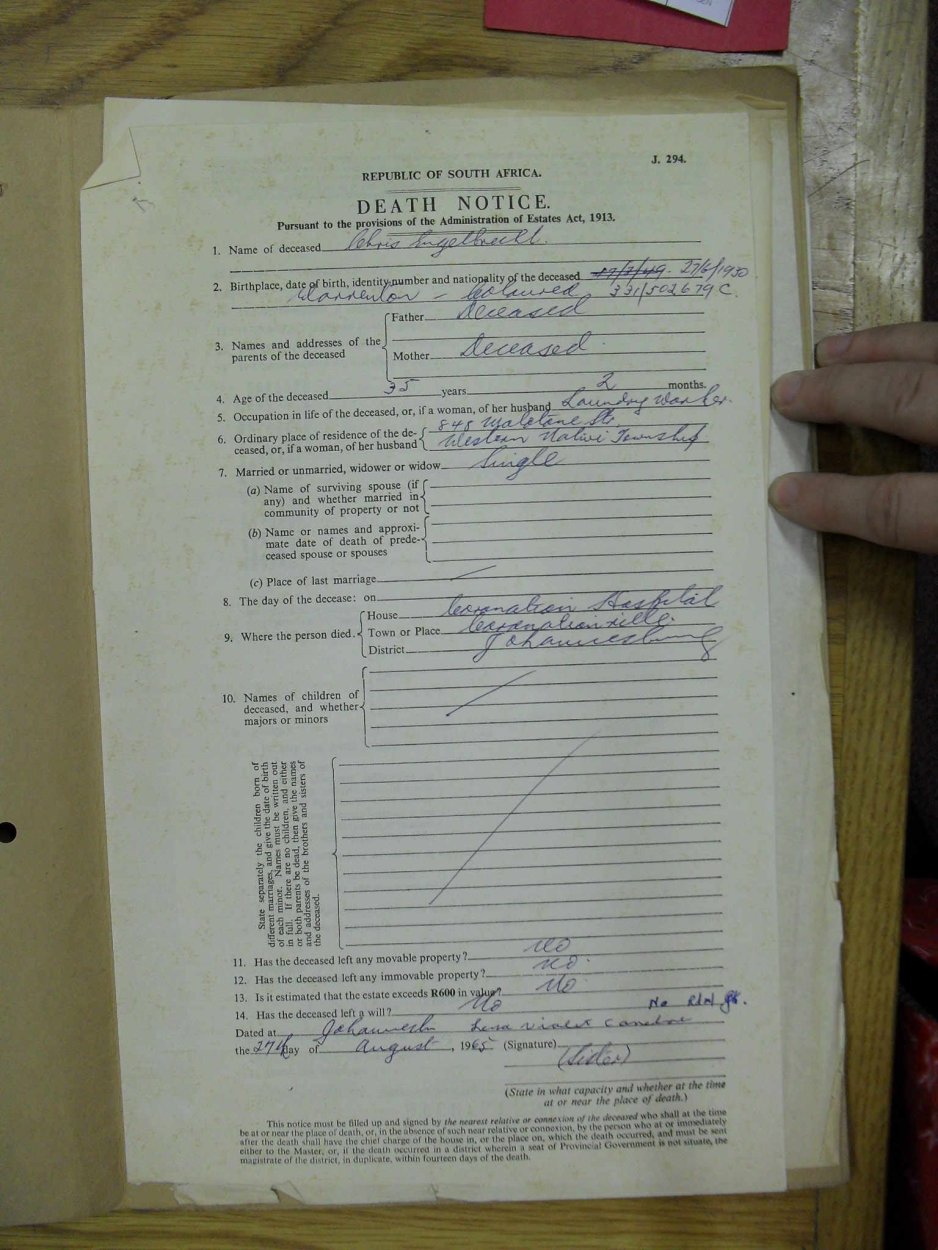 J. 294.
REPUBLIC OF SOUTH AFRICA.
DEATH NOTICE.
Pursuant to the provisions of the Administration of Estates Act, 1913.
1. Name of deceased Chris Engelbrecht.
2. Birthplace, date of birth, identity number and nationality of the deceased 27/6/1930
Warrenton - Coloured 331/502679 C.
3. Names and addresses of the parents of the deceased
Father Deceased
Mother Deceased.
4. Age of the deceased 35 years 2 months.
5. Occupation in life of the deceased, or, if a woman, of her husband Laundry Worker.
6. Ordinary place of residence of the de-
ceased, or, if a woman, of her husband
848 Str.
Western Native Township
7. Married or unmarried, widower or widow Single
(a) Name of surviving spouse (if
any) and whether married in
community of property or not
(b) Name or names and approxi-
mate date of death of prede-
ceased spouse or spouses
(c) Place of last marriage
8. The day of the decease: on
9. Where the person died.
House Coronation Hospital
Town or Place Coronationville.
District Johannesburg
10. Names of children of
deceased, and whether
majors or minors
State separately the children born of
different marriages, and give the date of birth
of each minor. Names must be written out
in full. If there are no children, and either
or both parents be dead, then give the names
and addresses of the brothers and sisters of
the deceased.
11. Has the deceased left any movable property? No
12. Has the deceased left any immovable property? No.
13. Is it estimated that the estate exceeds R600 in value? No
14. Has the deceased left a will? No
No
Dated at Johannesb Violet
the 27th day of August, 1965 (Signature)
(Sister)
(State in what capacity and whether at the time
at or near the place of death.)
This notice must be filled up and signed by the nearest relative or connexion of the deceased who shall at the time
be at or near the place of death, or, in the absence of such near relative or connexion, by the person who at or immediately
after the death shall have the chief charge of the house in, or the place on, which the death occurred, and must be sent
either to the Master, or, if the death occurred in a district wherein a seat of Provincial Government is not situate, the
magistrate of the district, in duplicate, within fourteen days of the death.